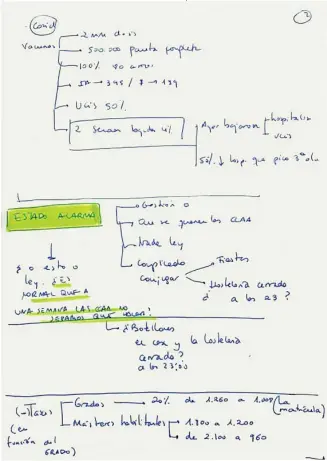 2
Covid
Vacunas
2 MM dosis
500.000 pauta completa
100% 80 años
IA → 395 / → 139
UCIS 50%
2 Semanas bajada 4%
Ayer bajaron
hospitaliz
UCIS
50% ↓ hosp. que pico 3ª ola
ESTADO ALARMA
Gestion
Que se quejen las CCAA
Nada ley
Complicado
conjugar
Fiestas
Hosteleria cerrado
a las 23?
¿ o esto o
ley. ¿ES
NORMAL QUE A
UNA SEMANA LAS CCAA NO
SEPAMOS QUE HACER?
¿Botellones
en cdx y la hosteleria
cerrado?
a las 23:00
(-) Tasas
(en
función del
GRADO)
Grados → 20% de 1.260 a 1.008 (la
matrícula)
Másteres habilitantes
1.800 a 1.200
de 2.100 a 960